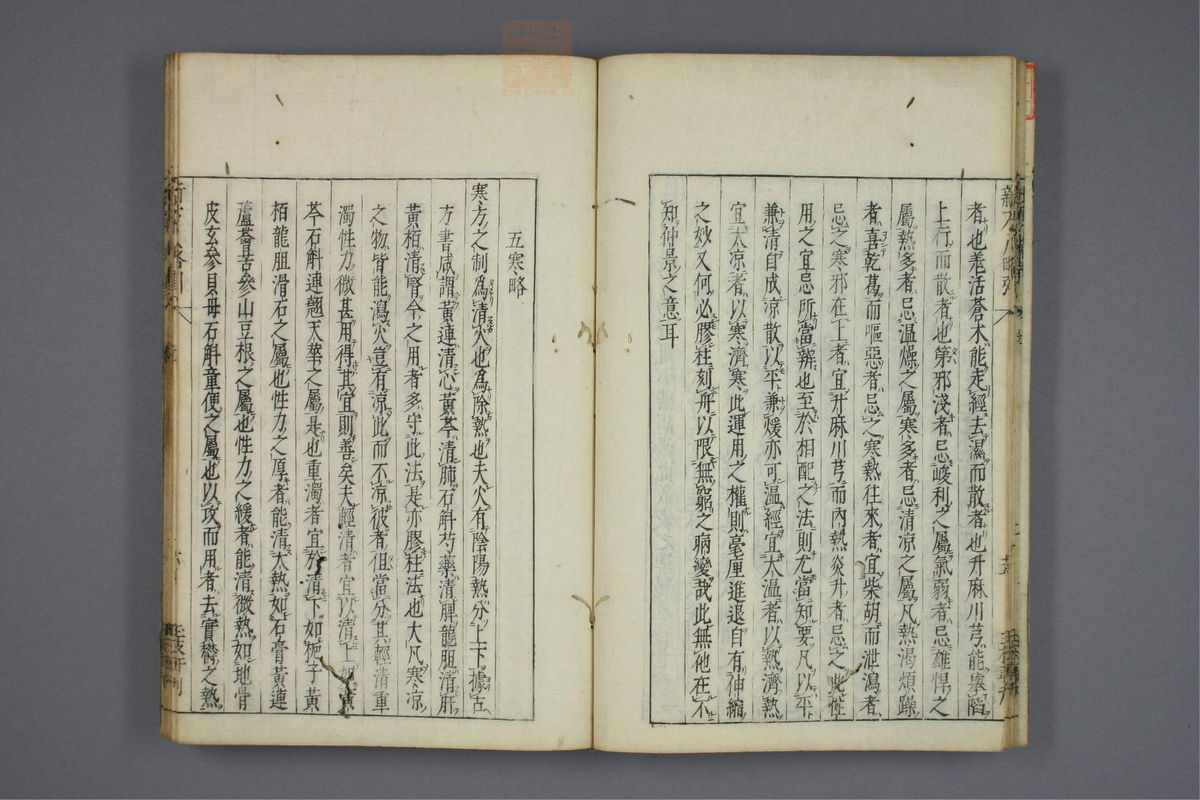 者也羌活蒼朮能走經去濕而散者也升麻川芎能舉陷
上行而散者也第邪淺者忌峻利之屬氣弱者忌雄悍之
屬熱多者忌温燥之屬寒多者忌清凉之屬凡熱渴煩躁
者喜乾葛而嘔惡者忌之寒熱往來者宜柴胡而泄瀉者
忌之寒邪在上者宜升麻川芎而內熱炎升者忌之此性
用之宜忌所當辨也至於相配之法則尤當知要凡以平
兼清自成凉散以平兼煖亦可温經宜大温者以熱濟熱
宜大凉者以寒濟寒此運用之權則毫厘進退自有伸縮
之妙又何必膠柱刻舟以限無窮之病變哉此無他在不
知仲景之意耳
五寒略
寒方之制為清火也為除熱也夫火有陰陽熱分上下據古
方書咸謂黃連清心黃芩清肺石斛芍藥清脾龍胆清肝
黃栢清腎今之用者多守此法是亦膠柱法也大凡寒凉
之物皆能瀉火豈有凉此而不凉彼者但當分其輕清重
濁性力微甚用得其宜則善矣夫輕清者宜以清上如黃
芩石斛連翹天花之屬是也重濁者宜於清下如梔子黃
栢龍胆滑石之屬也性力之厚者能清大熱如石膏黃連
蘆薈苦參山豆根之屬也性力之緩者能清微熱如地骨
皮玄參貝母石斛童便之屬也以攻而用者去實鬱之熱